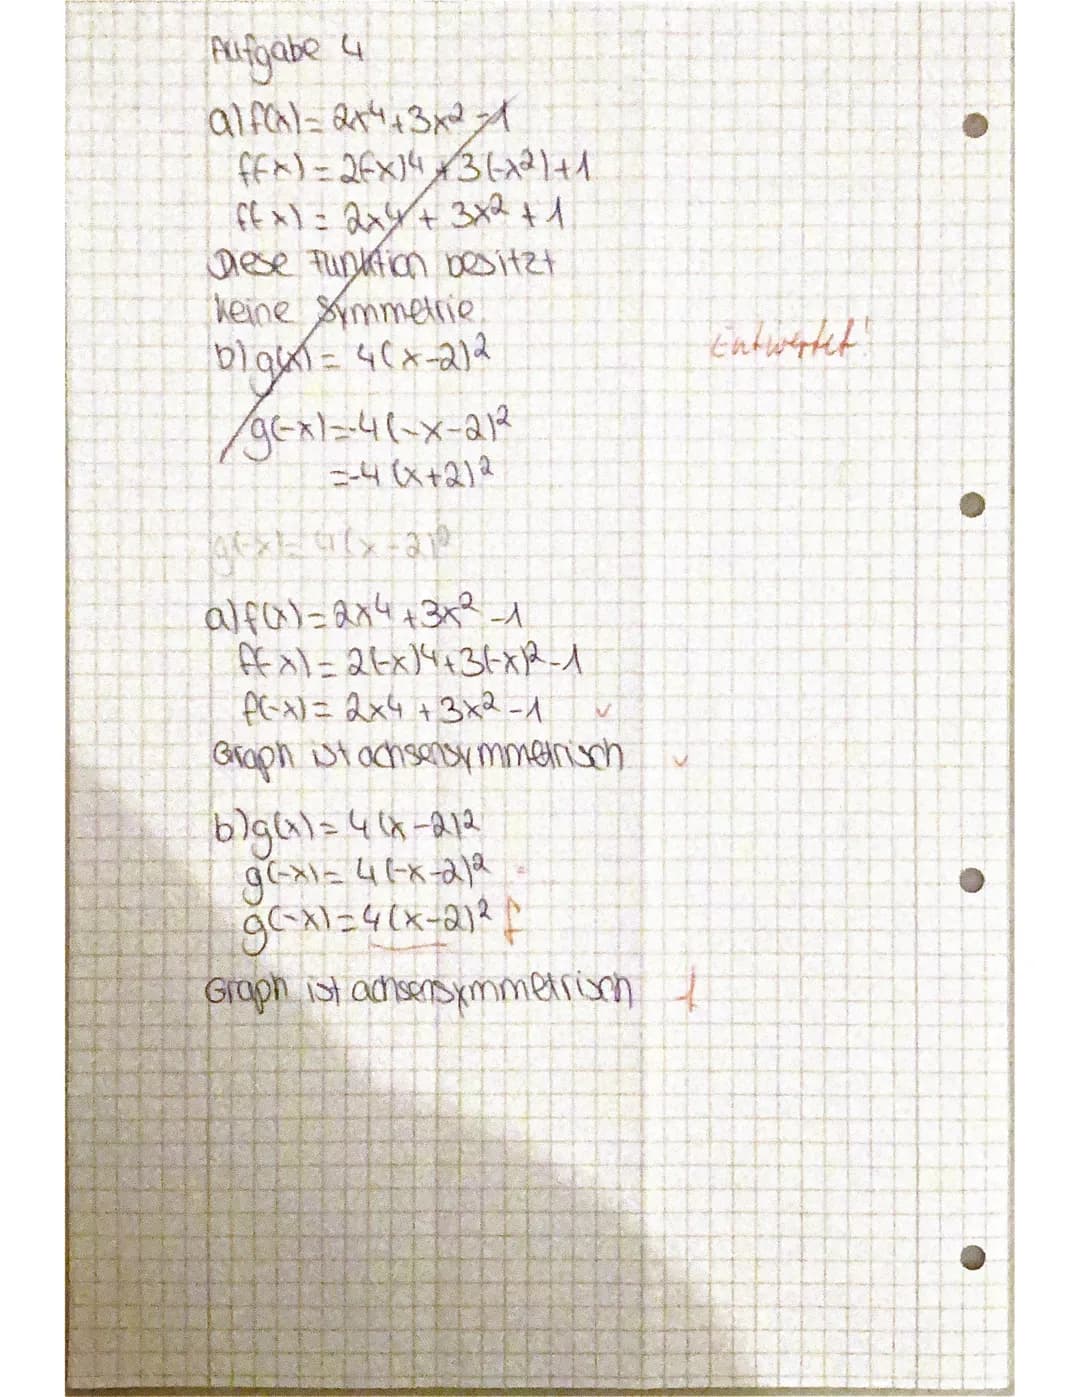 Aufgabe 4
a) f(x) = 2x4 + 3x2 - 1
f(-x) = 2(-x)4 + 3(-x2) + 1
f(-x) = 2x4 + 3x2 + 1
Diese Funktion besitzt
keine Symmetrie
b) g(x) = 4(x-2)2
Entwertet!
g(-x) = -4(-x-2)2
= -4(x+2)2
g(-x) = 4(x-2)2
a) f(x) = 2x4 + 3x2 - 1
f(-x) = 2(-x)4 + 3(-x)2 - 1
f(-x) = 2x4 + 3x2 - 1 ✓
Graph ist achsensymmetrisch ✓
b) g(x) = 4(x-2)2
g(-x) = 4(-x-2)2
g(-x) = 4(x-2)2 f
Graph ist achsensymmetrisch f